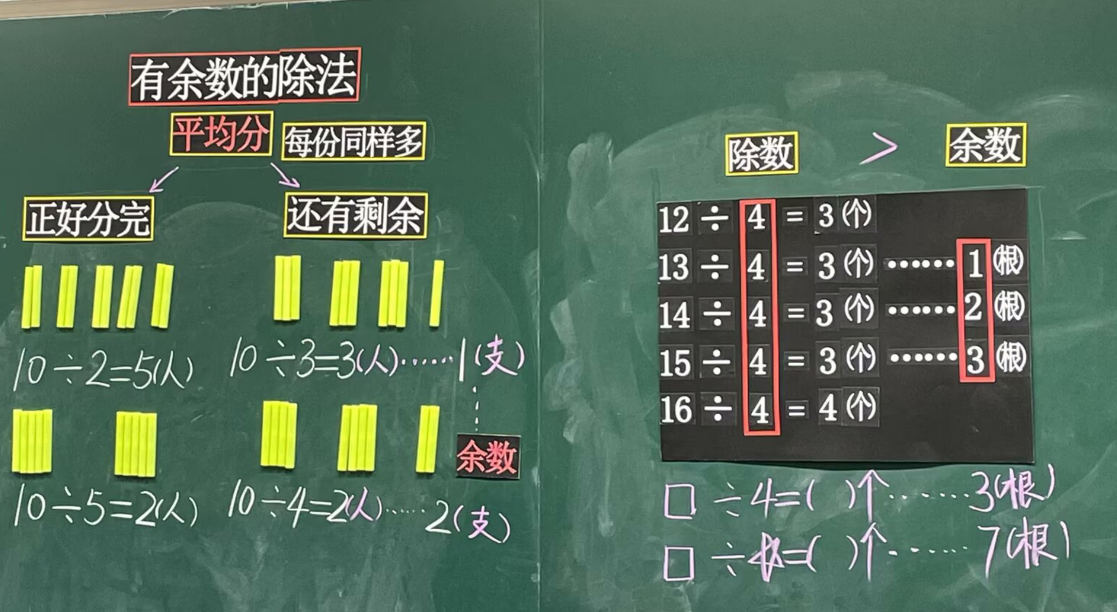 有余数的除法
平均分 每份同样多
正好分完 还有剩余
10÷2=5(人) 10÷3=3(人)……1(支)
余数
10÷5=2(人) 10÷4=2(人)……2(支)
除数 > 余数
12÷4=3(个)
13÷4=3(个)……1(根)
14÷4=3(个)……2(根)
15÷4=3(个)……3(根)
16÷4=4(个)
□÷4=( )个……3(根)
□÷ =( )个……7(根)